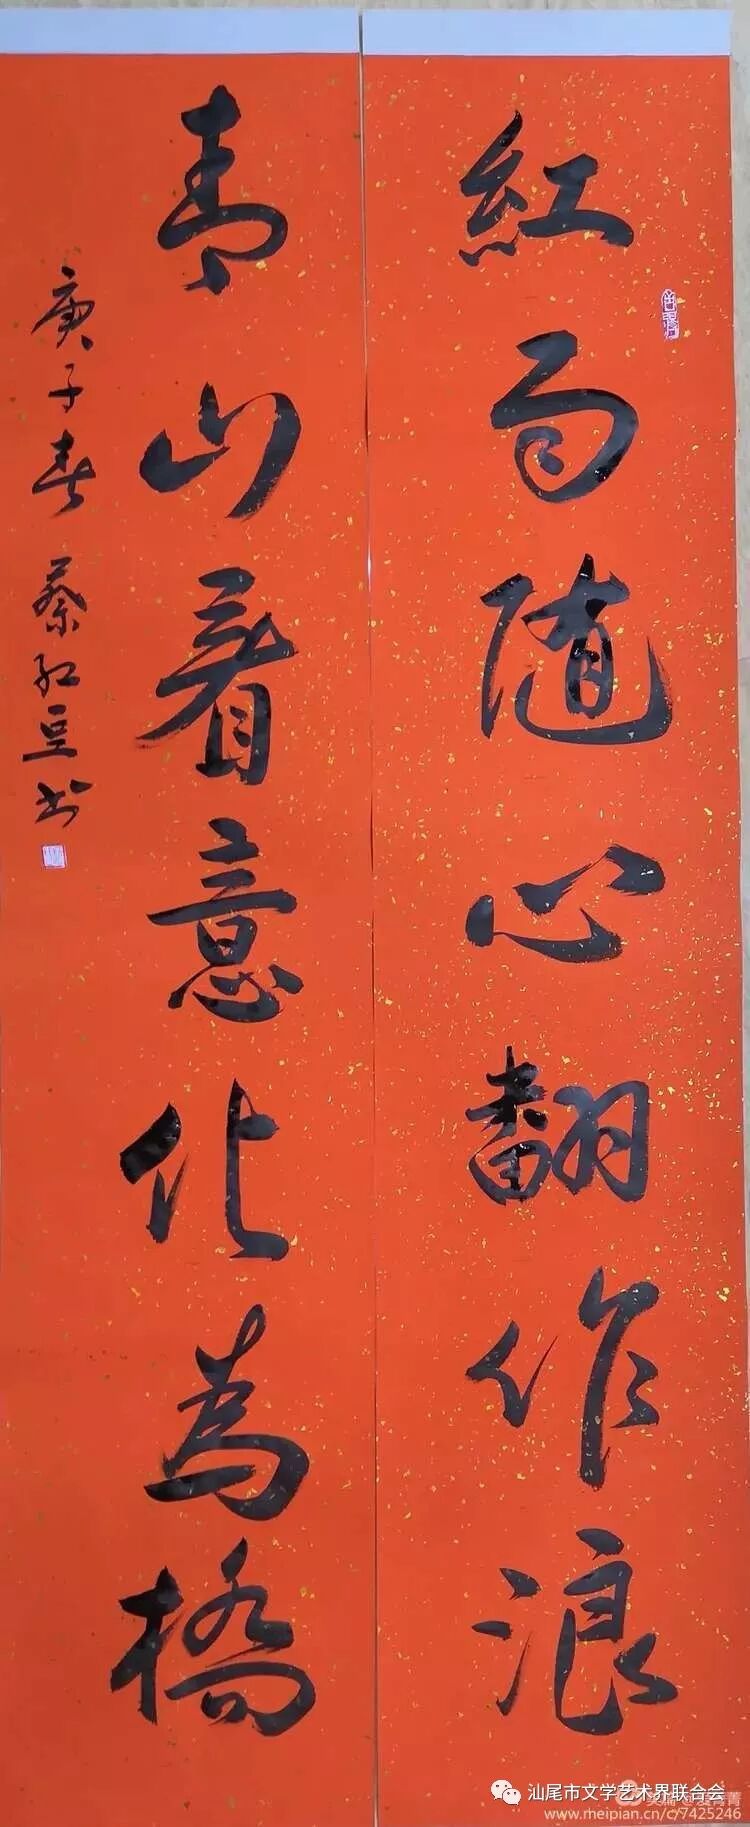 紅雨随心翻作浪
青山着意化為橋
庚子春 蔡红豆书
汕尾市文学艺术界联合会
www.meipian.cn/c/7425246